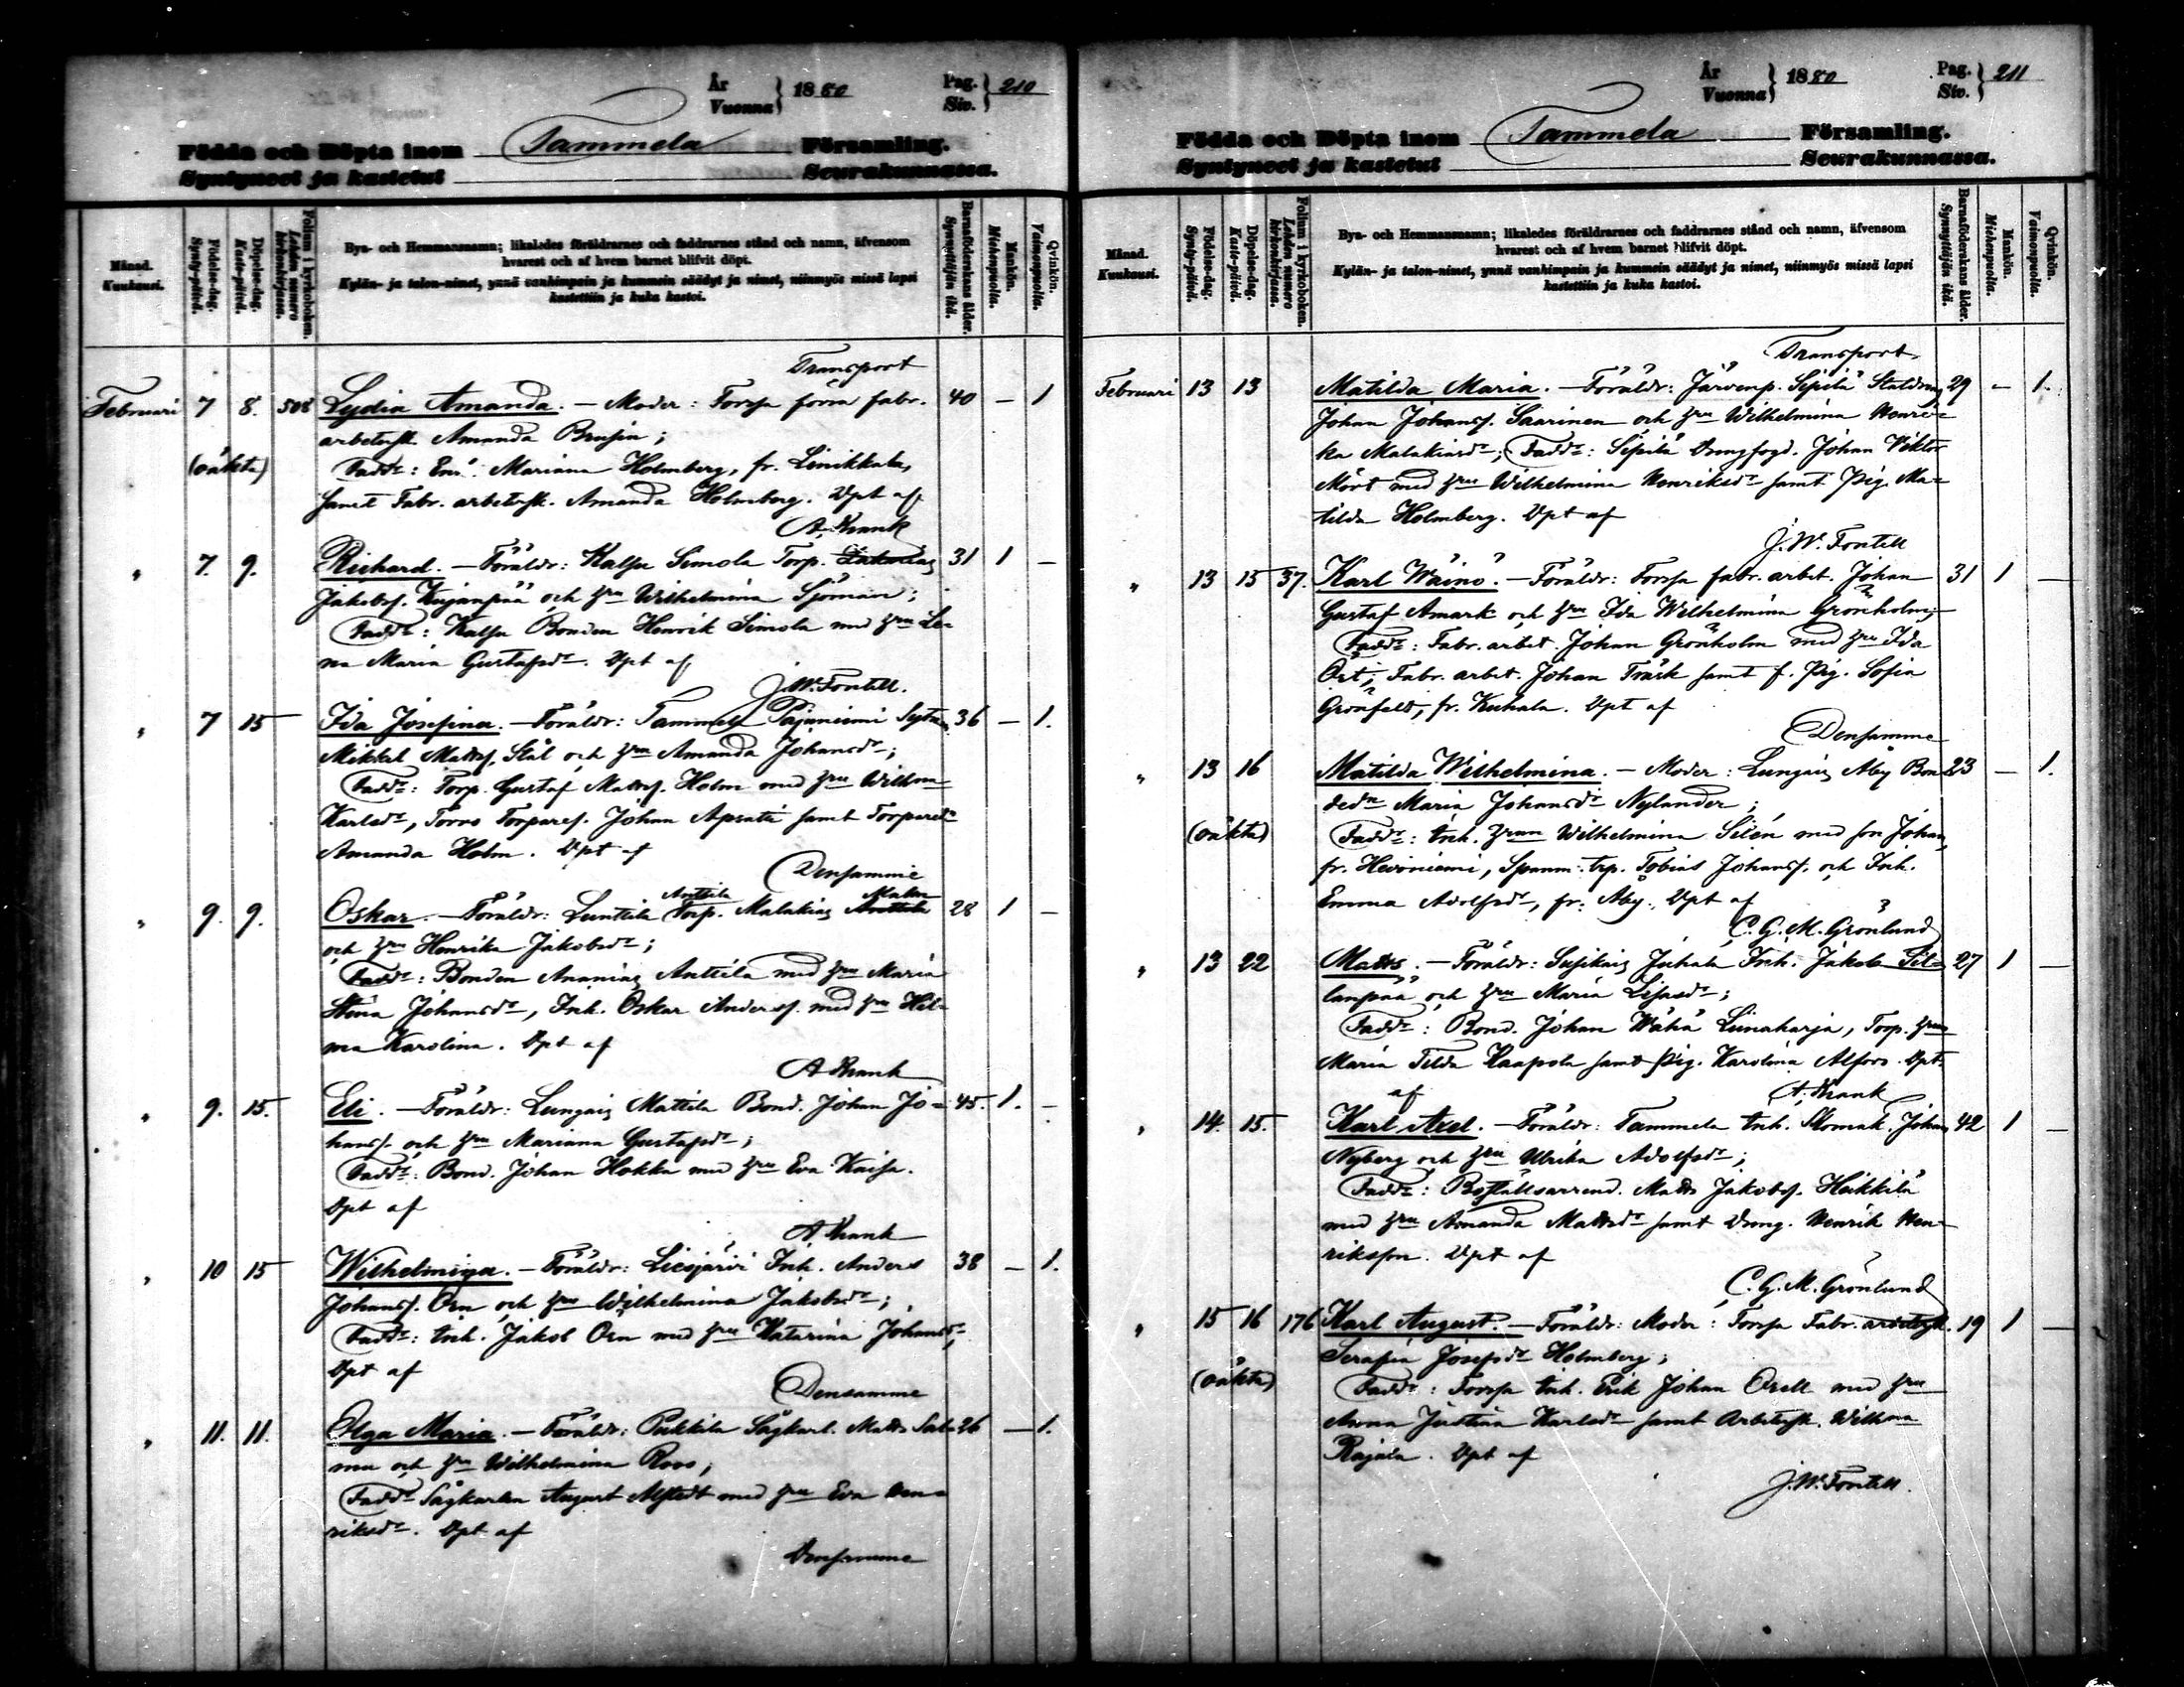 År
Vuonna } 1880 Pag.
Siv. } 210
Födda och Döpta inom Tammela Församling.
Syntyneet ja kastetut Seurakunnassa.
Månad.
Kuukausi.
Födelse-dag.
Synty-päivä.
Döpelse-dag.
Kaste-päivä.
Folium i kyrkoboken.
Lehden numero kirkonkirjassa.
Bya- och Hemmansnamn; likaledes föräldrarnes och faddrarnes stånd och namn, äfvensom
hvarest och af hvem barnet blifvit döpt.
Kylän- ja talon-nimet, ynnä vanhimpain ja kummein säädyt ja nimet, niinmyös missä lapsi
kastettiin ja kuka kastoi.
Barnaföderskans ålder.
Synnyttäjän ikä.
Mankön.
Miehenpuolta.
Qvinkön.
Vaimonpuolta.
Transport
Februari 7 8. 508 Lydia Amanda. — Moder: Forssa förra fabr. 40 — 1
arbetersk. Amanda Brusin;
(oäkta) Faddr: Mariana Holmberg, fr. Linikkala,
samt Fabr. arbetersk. Amanda Holmberg. Dpt af
A. Krank
" 7. 9. Richard. — Föräldr: Kalsu Simola Torp. 31 1 —
Jakobss. Kujanpää och hru Wilhelmina Sjöman;
Faddr: Kalsu Bonden Henrik Simola med hru Le-
na Maria Gustafsdr. Dpt af
J. W. Fontell.
" 7 15 Ida Josefina. — Föräldr: Tammela Pajuniemi 36 — 1.
Mikkel Matts. Stål och hru Amanda Johansdr;
Faddr: Torp. Gustaf Matts. Holm med hru Wilhna
Karlsdr, Torro Torpares. Johan samt Torparedr
Amanda Holm. Dpt af
Densamme
" 9. 9. Oskar. — Föräldr: Luntila Anttila Torp. Malakias Anttila Malm 28 1 —
och hru Henrika Jakobsdr;
Faddr: Bonden Ananias Anttila med hru Maria
Stina Johansdr, Inh. Oskar Anderss. med hru Hil-
ma Karolina. Dpt af
A. Krank
" 9. 15. Eli. — Föräldr: Lungais Mattila Bond. Johan Jo- 45. 1. —
hanss. och hru Mariana Gustafsdr;
Faddr: Bond. Johan Hokka med hru Eva Kaisa.
Dpt af
A. Krank
" 10 15 Wilhelmina. — Föräldr: Liesjärvi Inh. Anders 38 — 1.
Johanss. Örn och hru Wilhelmina Jakobsdr;
Faddr: Inh. Jakob Örn med hru Katarina Johansdr,
Dpt af
Densamme
" 11. 11. Olga Maria. — Föräldr: Pikkila Sågkarl. Matts Sal- 26 — 1.
mu och hru Wilhelmina Roos;
Faddr Sågkarlen August Alstedt med hru Eva Hen-
riksdr. Dpt af
Densamme
År
Vuonna } 1880 Pag.
Siv. } 211
Födda och Döpta inom Tammela Församling.
Syntyneet ja kastetut Seurakunnassa.
Månad.
Kuukausi.
Födelse-dag.
Synty-päivä.
Döpelse-dag.
Kaste-päivä.
Folium i kyrkoboken.
Lehden numero kirkonkirjassa.
Bya- och Hemmansnamn; likaledes föräldrarnes och faddrarnes stånd och namn, äfvensom
hvarest och af hvem barnet blifvit döpt.
Kylän- ja talon-nimet, ynnä vanhimpain ja kummein säädyt ja nimet, niinmyös missä lapsi
kastettiin ja kuka kastoi.
Barnaföderskans ålder.
Synnyttäjän ikä.
Mankön.
Miehenpuolta.
Qvinkön.
Vaimonpuolta.
Transport
Februari 13 13 Matilda Maria. — Föräldr: Järvenp. Sepilä Staldräng 29 — 1.
Johan Johanss. Saarinen och hru Wilhelmina Henri-
ka Malakiasdr; Faddr: Sepilä Drängfogd. Johan Viktor
Mört med hru Wilhelmina Henriksdr samt Pig. Ma-
tilda Holmberg. Dpt af
J. W. Fontell
" 13 15 37. Karl Wäinö. — Föräldr: Forssa fabr. arbet. Johan 31 1 —
Gustaf Amark och hru Ida Wilhelmina Grönholm;
Faddr: Fabr. arbet. Johan Grönholm med hru Ida
Öst; Fabr. arbet. Johan Träsk samt f. Pig. Sofia
Grönfelt, fr. Kuhala. Dpt af
Densamme
" 13 16 Matilda Wilhelmina. — Moder: Lungais Åby Bon- 23 — 1.
dedr Maria Johansdr Nylander;
(oäkta) Faddr: Inh. hrun Wilhelmina Silén med son Johan,
fr. Hevoniemi, Spann. trp. Tobias Johanss. och Inh.
Emma Adolfsdr, fr. Åby. Dpt af
C. G. M. Grönlund
" 13 22 Matts. — Föräldr: Susikais Juhala Inh. Jakob Sil- 27 1 —
lanpää och hru Maria Lisasdr;
Faddr: Bond. Johan Wähä Liinaharja, Torp. hru
Maria Tilda Kaapola samt Pig. Karolina Alfors. Dpt
af A. Krank
" 14. 15. Karl Axel. — Föräldr: Tammela Inh. Skomak. Johan 42 1 —
Nyberg och hru Ulrika Adolfsdr;
Faddr: Boställsarrend. Matts Jakobss. Heikkilä
med hru Amanda Mattsdr samt Dräng. Henrik Hen-
riksson. Dpt af
C. G. M. Grönlund
" 15 16 176 Karl August. — Föräldr: Moder: Forssa Fabr. arbetersk. 19 1 —
Serafia Josefsdr Holmberg;
(oäkta) Faddr: Forssa Inh. Erik Johan Orell med hru
Anna Justina Karlsdr samt Arbetersk. Wilhna
Rajala. Dpt af
J. W. Fontell.